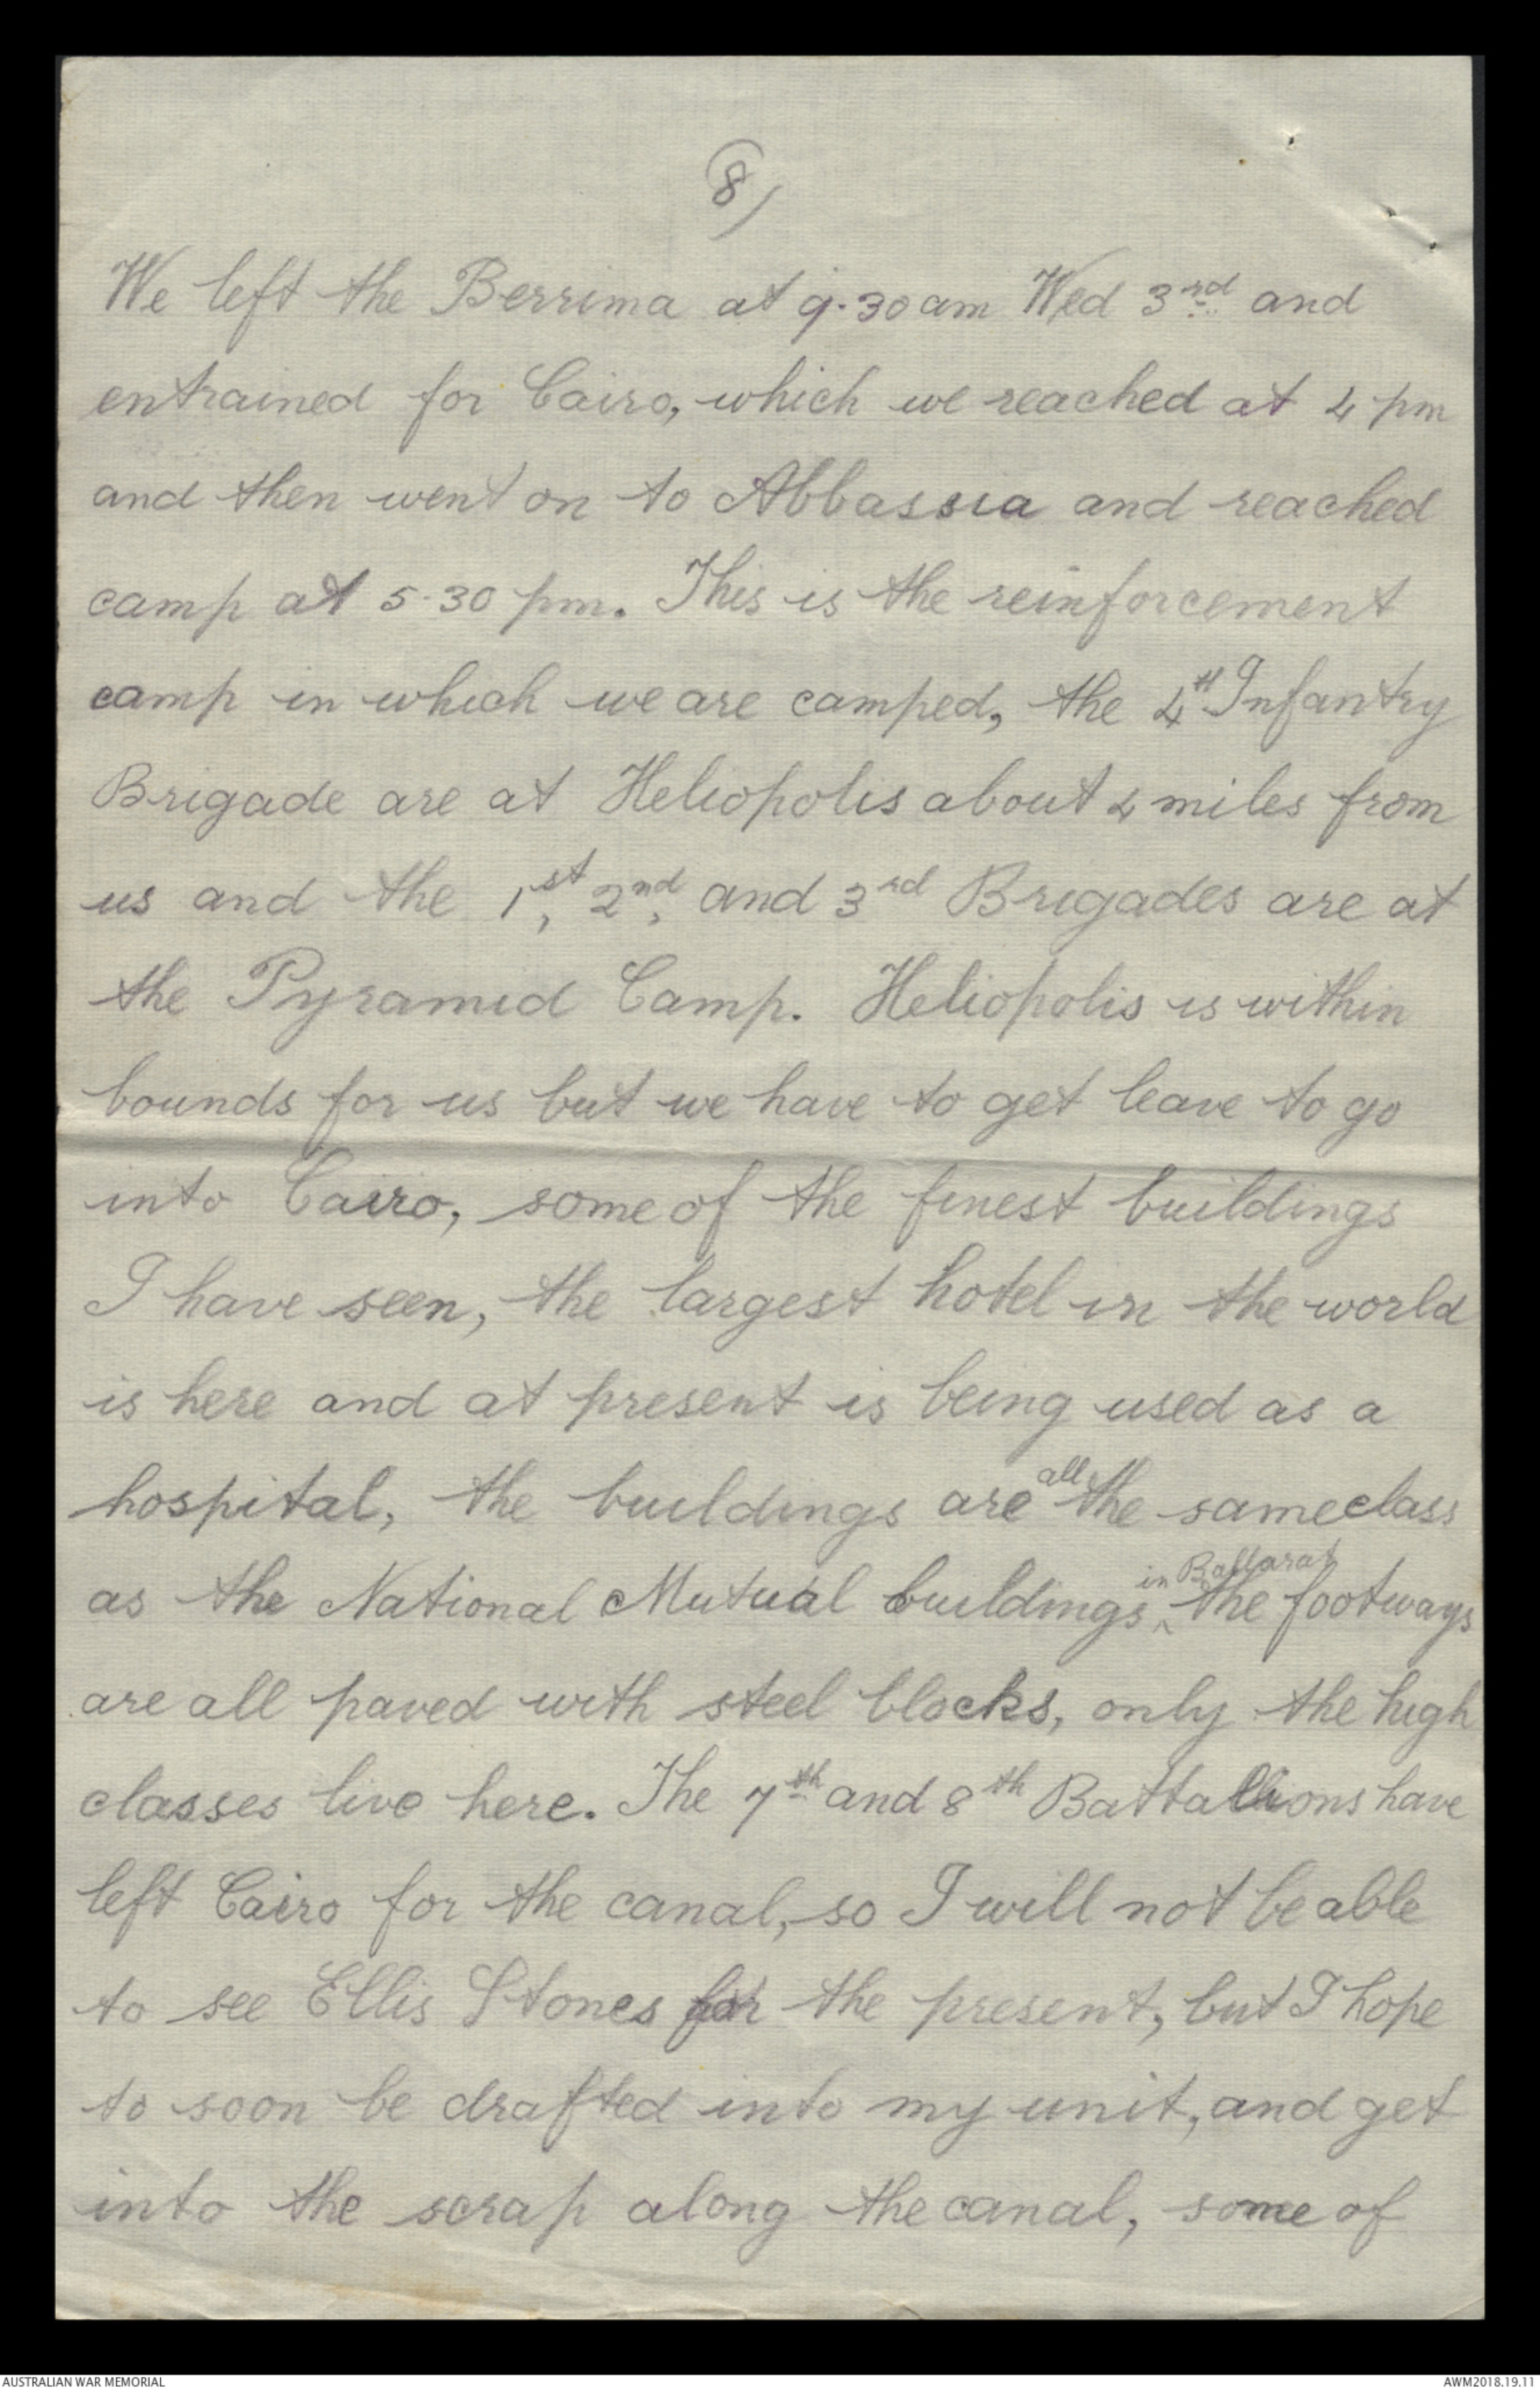 8
We left the Berrima at 9.30 am Wed 3rd and
entrained for Cairo, which we reached at 4 pm
and then went on to Abbassia and reached
camp at 5.30 pm. This is the reinforcement
camp in which we are camped, the 4th Infantry
Brigade are at Heliopolis about 2 miles from
us and the 1st, 2nd, and 3rd Brigades are at
the Pyramid Camp. Heliopolis is within
bounds for us but we have to get leave to go
into Cairo, some of the finest buildings
I have seen, the largest hotel in the world
is here and at present is being used as a
hospital, the buildings are all the same class
as the National Mutual buildings in Ballarat the footways
are all paved with steel blocks, only the high
classes live here. The 7th and 8th Battallions have
left Cairo for the canal, so I will not be able
to see Ellis Stones for the present, but I hope
to soon be drafted into my unit, and get
into the scrap along the canal, some of
AUSTRALIAN WAR MEMORIAL
AWM2018.19.11